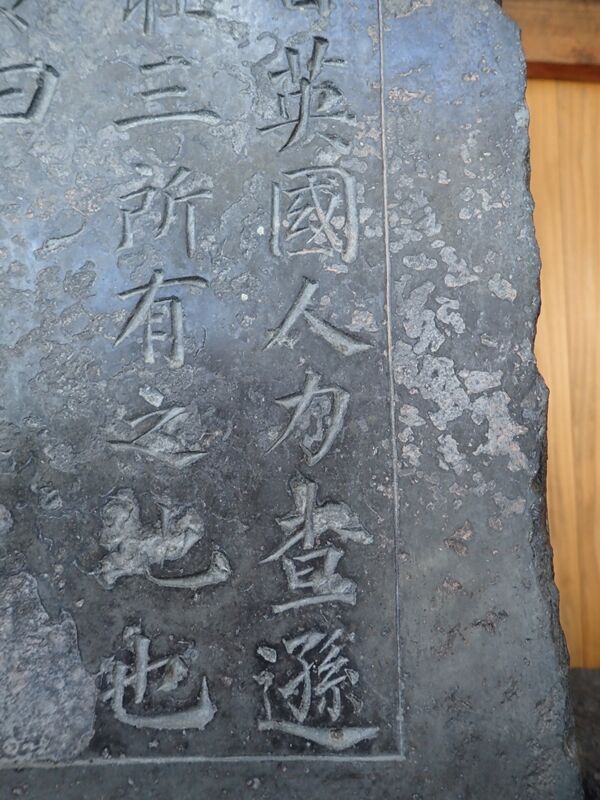 英國人力查遜
三所有之地也
曰